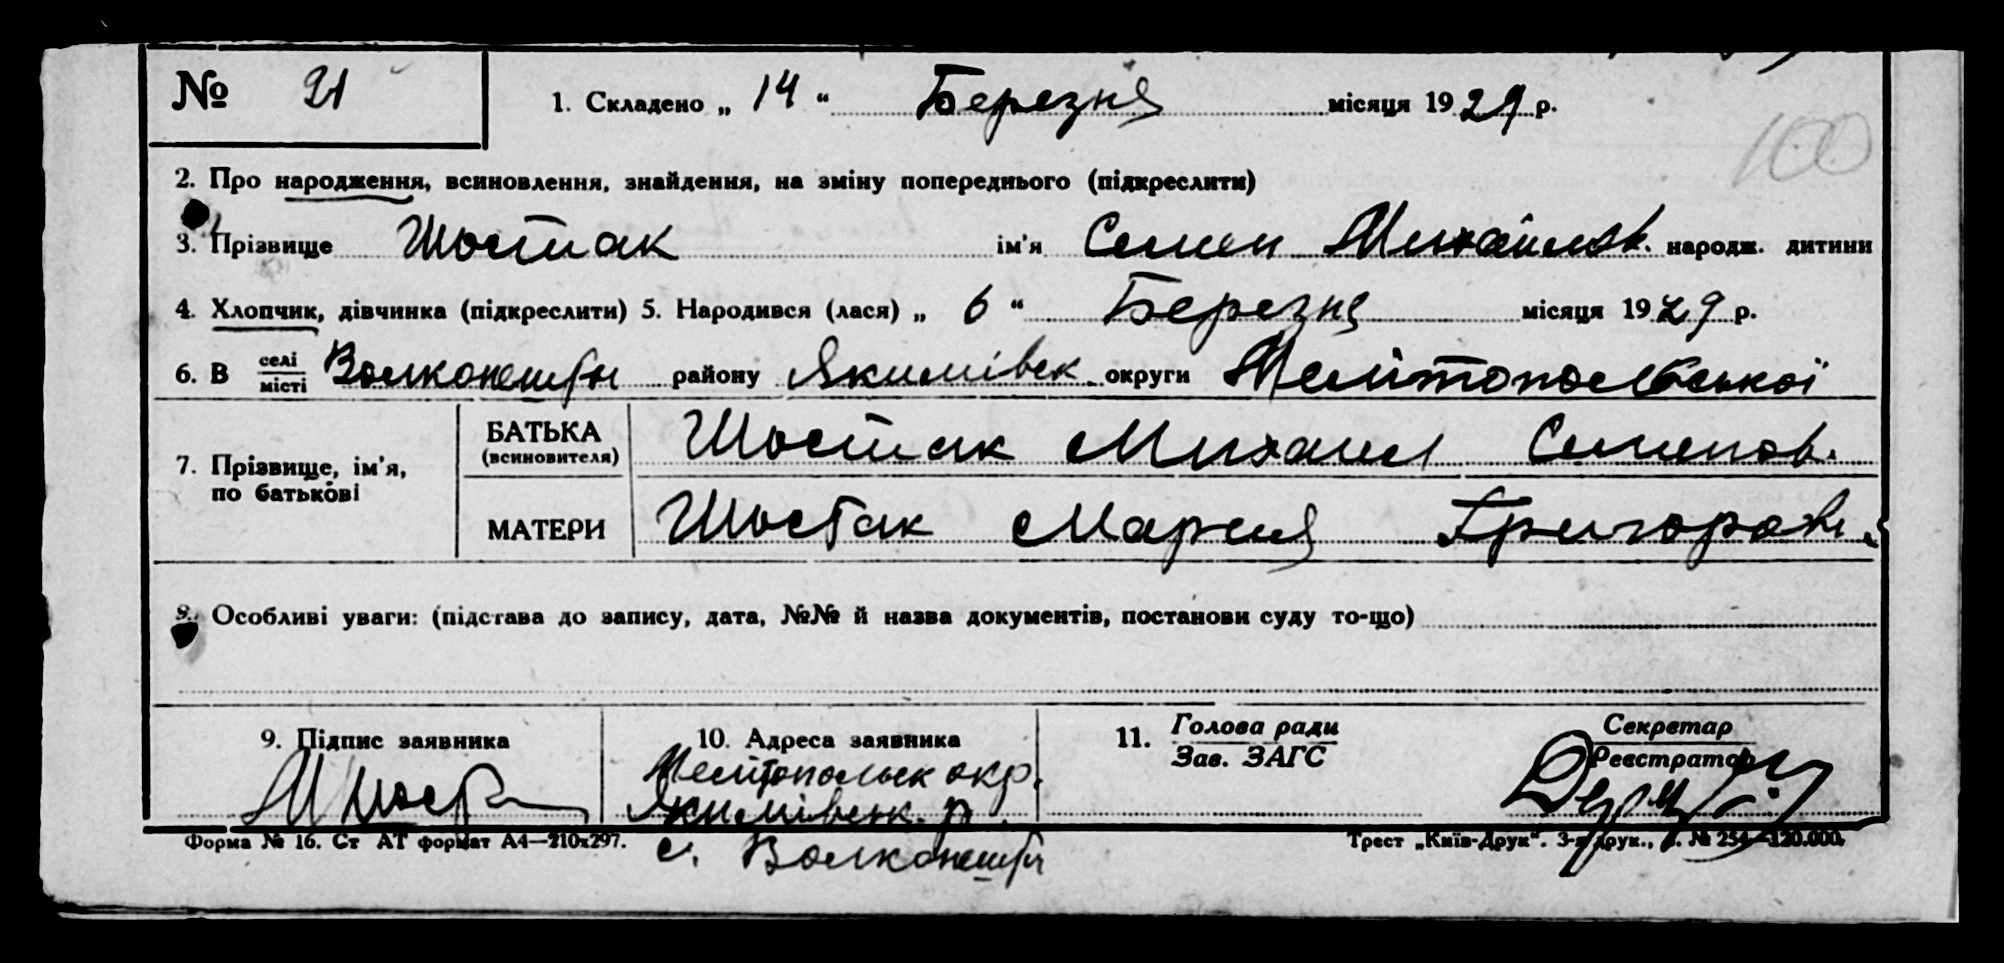 № 21
1. Складено „ 14 “ Березня місяця 1929 р.
100
2. Про народження, всиновлення, знайдення, на зміну попереднього (підкреслити)
3. Прізвище Шостак ім'я Семен Михайлов. народж. дитини
4. Хлопчик, дівчинка (підкреслити) 5. Народився (лася) „ 6 “ Березня місяця 1929 р.
6. В селі / місті Волконешты району Якимівск округи Мелітопольської
7. Прізвище, ім'я, по батькові
БАТЬКА (всиновителя) Шостак Михаил Семенов.
МАТЕРИ Шостак Мария Григоров.
8. Особливі уваги: (підстава до запису, дата, №№ й назва документів, постанови суду то-що)
9. Підпис заявника
МШост
10. Адреса заявника
Мелітопольск окр.
Якимівськ. р.
с. Волконешты
11. Голова ради / Зав. ЗАГС
Секретар / Реєстратор
Форма № 16. Ст АТ формат А4—210х297.
Трест „Київ-Друк“. 3-я друк., № 254—120.000.